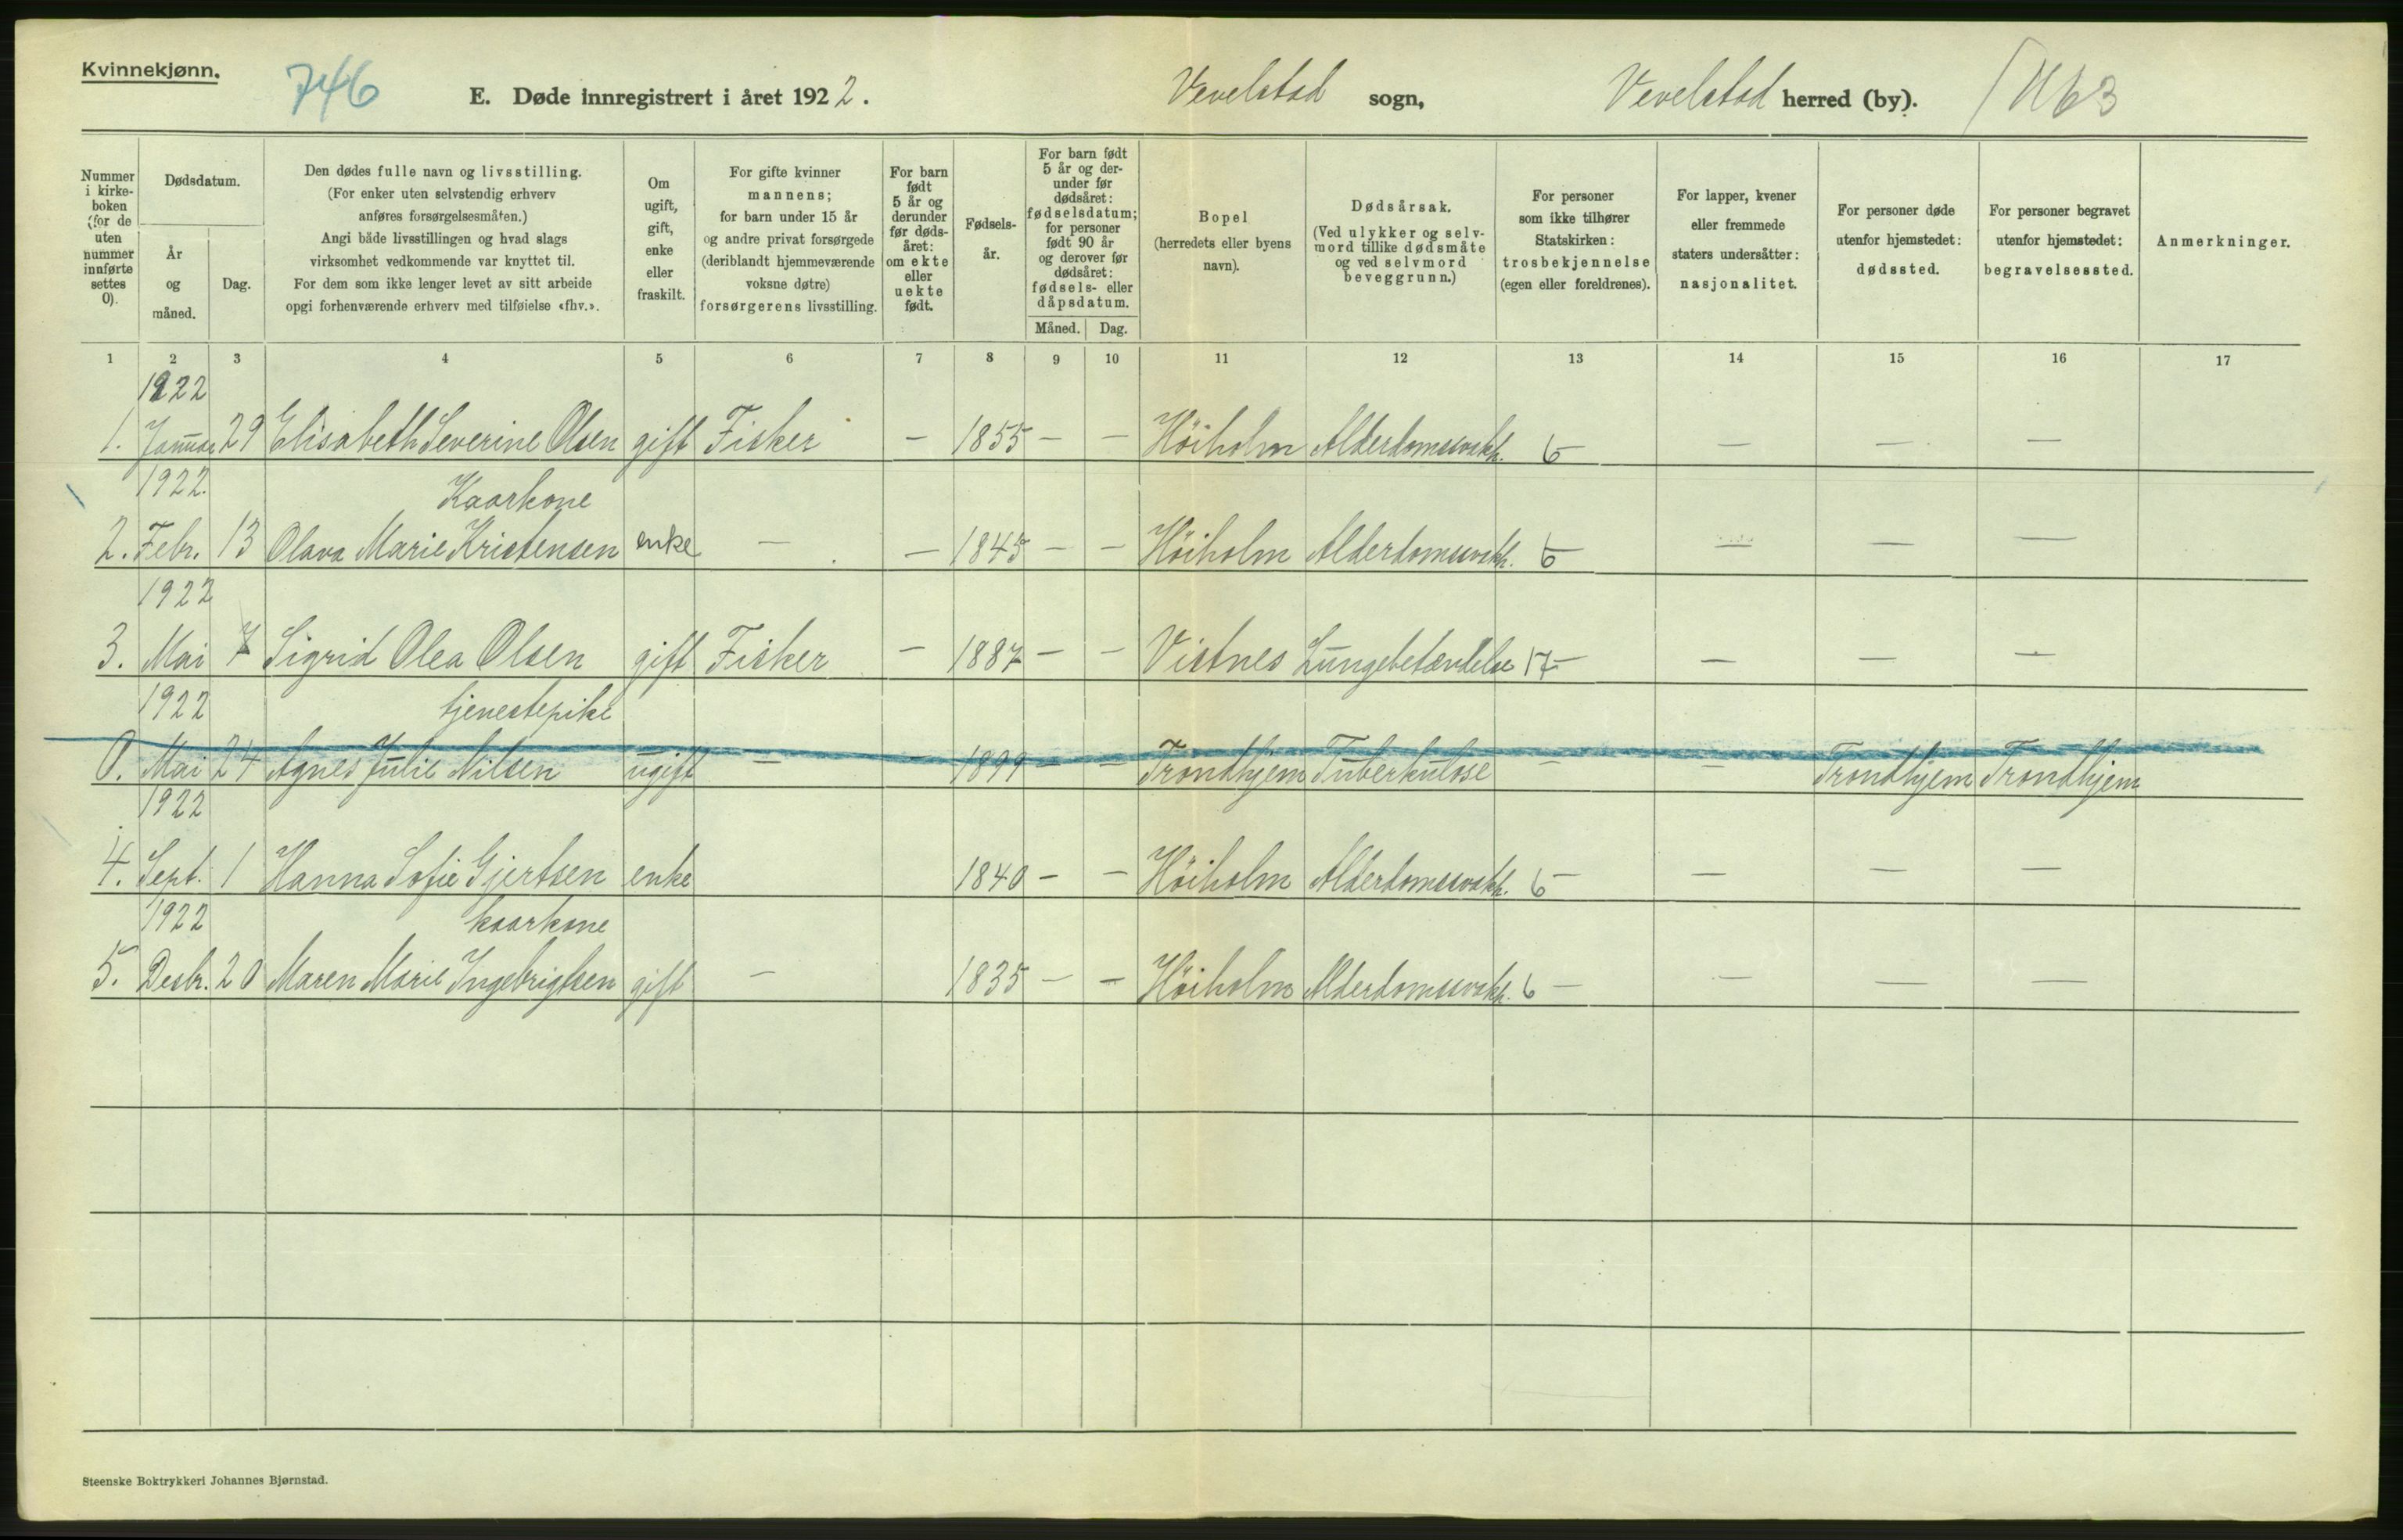 Kvinnekjønn.
746
E. Døde innregistrert i året 1922.
Vevelstad sogn,
Vevelstad herred (by).
Nummer i kirke- boken (for de uten nummer innførte settes 0).
Dødsdatum.
År og måned.
Dag.
Den dødes fulle navn og livsstilling.
(For enker uten selvstendig erhverv
anføres forsørgelsesmåten.)
Angi både livsstillingen og hvad slags
virksomhet vedkommende var knyttet til.
For dem som ikke lenger levet av sitt arbeide
opgi forhenværende erhverv med tilføielse «fhv.».
Om ugift, gift, enke eller fraskilt.
For gifte kvinner
mannens;
for barn under 15 år
og andre privat forsørgede
(deriblandt hjemmeværende
voksne døtre)
forsørgerens livsstilling.
For barn født 5 år og derunder før døds- året: om ekte eller uekte født.
Fødsels- år.
For barn født 5 år og der- under før dødsåret: fødselsdatum; for personer født 90 år og derover før dødsåret: fødsels- eller dåpsdatum.
Måned. Dag.
Bopel
(herredets eller byens
navn).
Dødsårsak.
(Ved ulykker og selv-
mord tillike dødsmåte
og ved selvmord
beveggrunn.)
For personer
som ikke tilhører
Statskirken:
trosbekjennelse
(egen eller foreldrenes).
For lapper, kvener
eller fremmede
staters undersåtter:
nasjonalitet.
For personer døde
utenfor hjemstedet:
dødssted.
For personer begravet
utenfor hjemstedet:
begravelsessted.
Anmerkninger.
1 2 3 4 5 6 7 8 9 10 11 12 13 14 15 16 17
1922
1. Januar 29 Elisabeth Severine Olsen gift Fisker — 1855 — — Höiholm Alderdomssvakh. 6 — — — —
1922. Kaarkone
2. Febr. 13 Olava Marie Kristensen enke — — 1845 — — Höiholm Alderdomssvakh. 6 — — — —
1922
3. Mai 7 Sigrid Olea Olsen gift Fisker — 1887 — — Vistnes Lungebetændelse 17 — — — —
1922 tjenestepike
0. Mai 24 Agnes Julie Nilsen ugift — — 1899 — — Trondhjem Tuberkulose — — Trondhjem Trondhjem
1922
4. Sept. 1 Hanna Sofie Gjertsen enke 1840 — — Höiholm Alderdomssvakh. 6 — — — —
1922 kaarkone
5. Desbr. 20 Maren Marie Ingebrigtsen gift — 1835 — — Höiholm Alderdomssvakh. 6 — — — —
Steenske Boktrykkeri Johannes Bjørnstad.